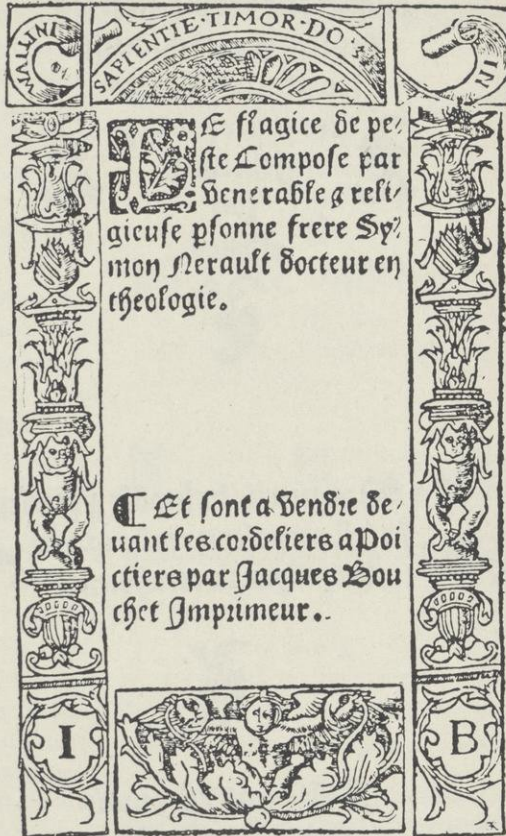 IN
SAPIENTIE·TIMOR·DO
LE flagice de pe⸗
ste Compose par
venerable ⁊ reli⸗
gieuse psonne frere Sy⸗
mon Nerault docteur en
theologie.
¶ Et sont a vendre de⸗
uant les cordeliers a Poi
ctiers par Jacques Bou
chet Imprimeur.
I B